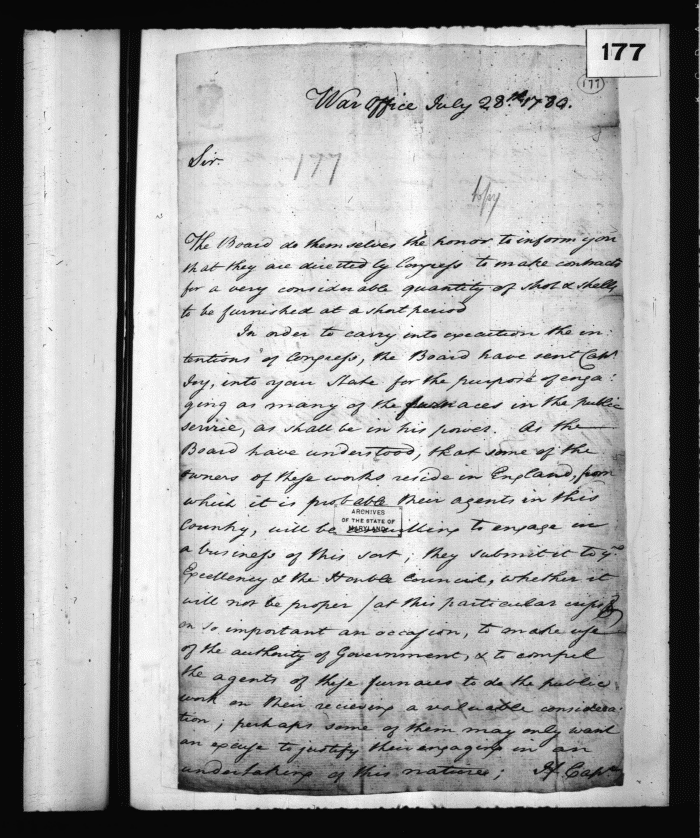 177
177
War Office July 28th 1780.
Sir.
177
Copy
The Board do themselves the honor to inform you
that they are directed by Congress to make contracts
for a very considerable quantity of shot & shells
to be furnished at a short period
In order to carry into execution the in:
tentions of Congress, the Board have sent Capt
Joy, into your State for the purpose of enga:
ging as many of the furnaces in the public
service, as shall be in his power. As the
Board have understood, that some of the
owners of these works reside in England, from
which it is probable their agents in this
Country, will be unwilling to engage in
ARCHIVES
OF THE STATE OF
MARYLAND
a business of this sort; they submit it to yr
Excellency & the Honble Council, whether it
will not be proper (at this particular crisis &
on so important an occasion, to make use
of the authority of Government, & to compel
the agents of these furnaces to do the public
work on their recieving a valuable considera:
tion; perhaps some of them may only want
an excuse to justify their engaging in an
undertaking of this nature; If Capt